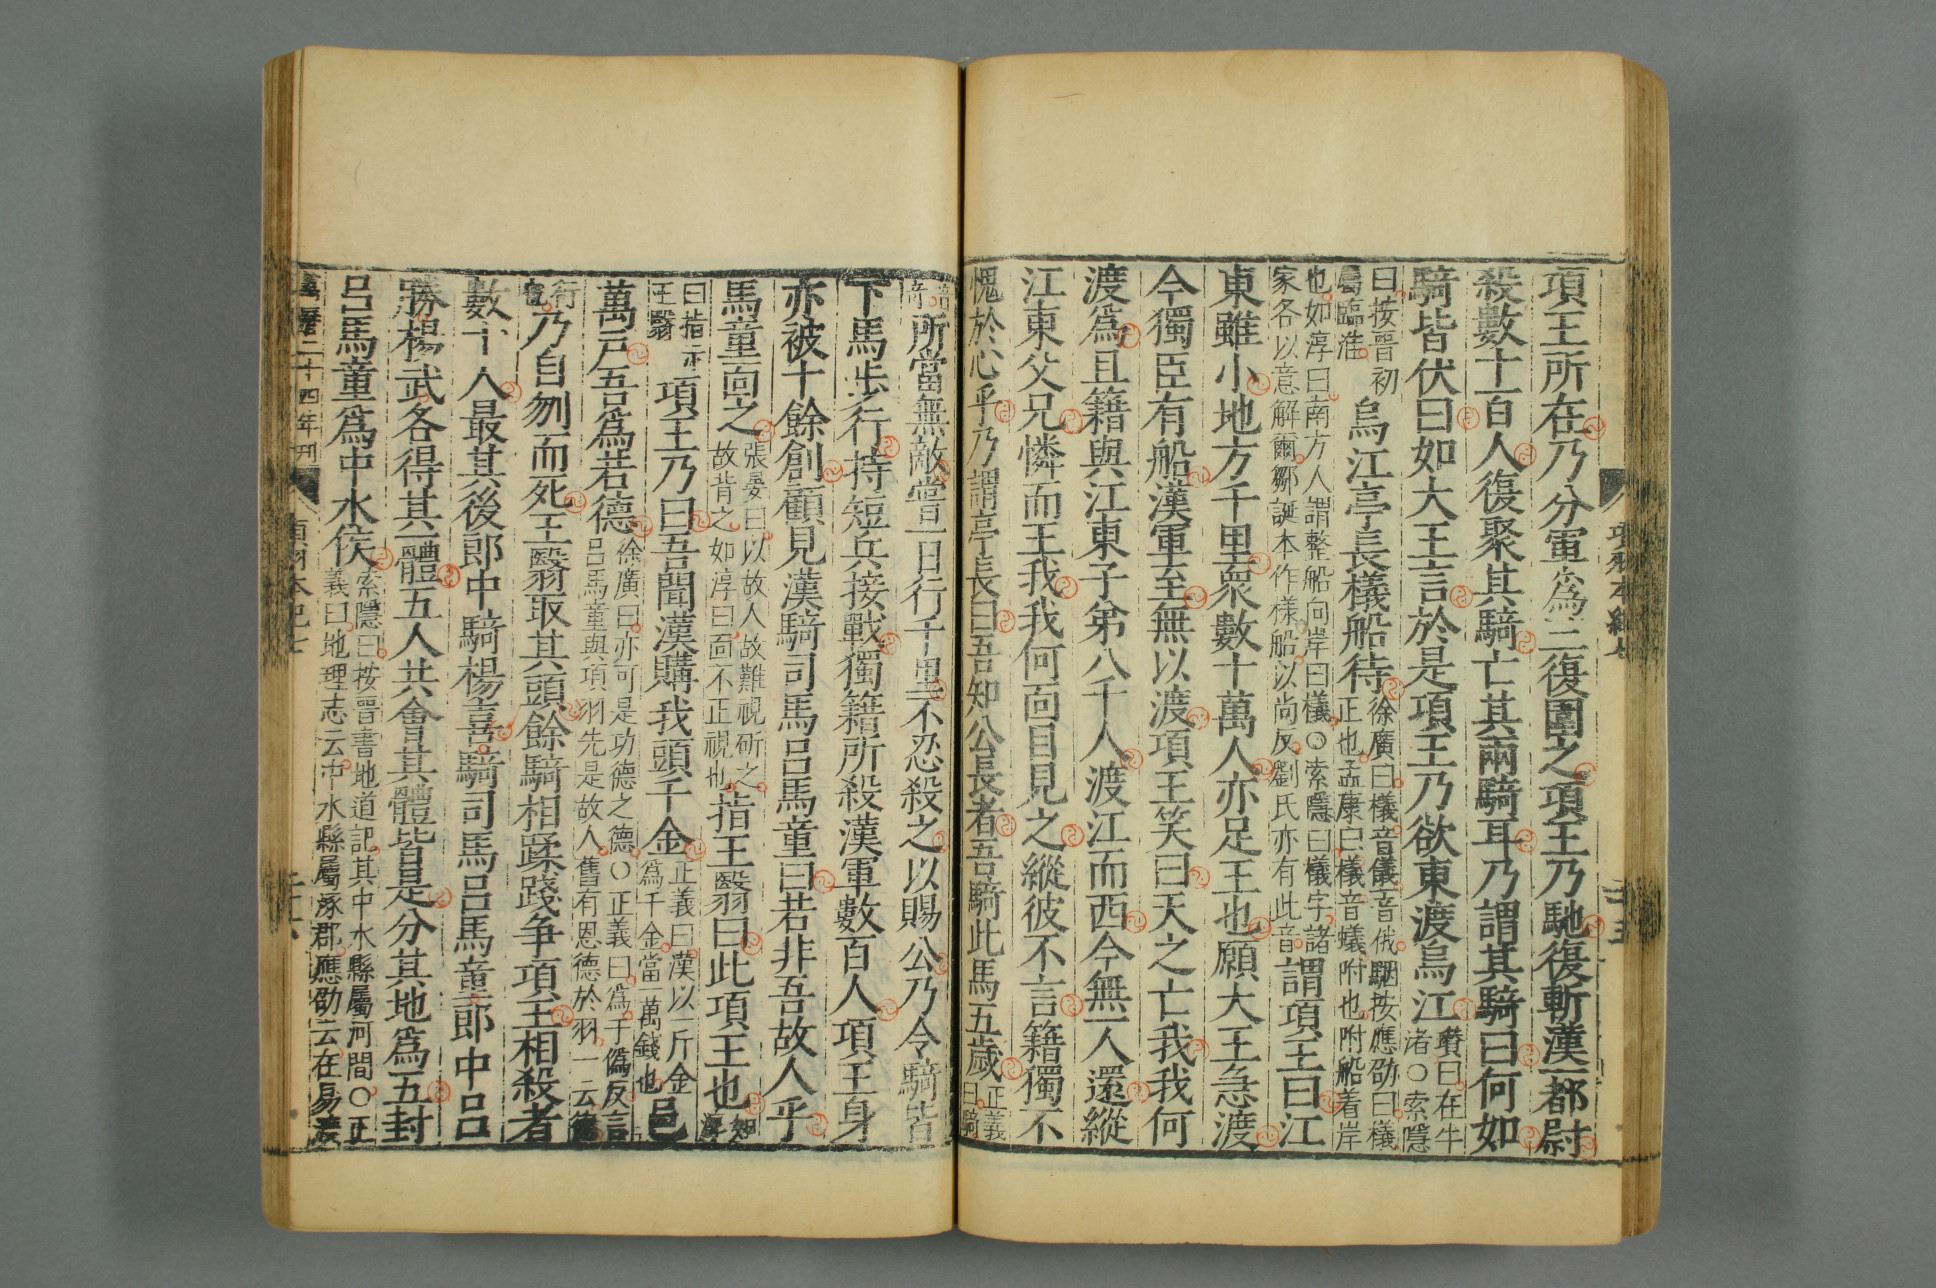 項羽本紀七
項王所在乃分軍爲三復圍之項王乃馳復斬漢一都尉
殺數十百人復聚其騎亡其兩騎耳乃謂其騎曰何如
騎皆伏曰如大王言於是項王乃欲東渡烏江瓚曰在牛
渚○索隱
曰按晉初
屬臨淮烏江亭長檥船待徐廣曰檥音儀音俄駰按應劭曰檥
正也孟康曰檥音蟻附也附船着岸
也如淳曰南方人謂整船向岸曰檥○索隱曰檥字諸
家各以意解爾鄒誕本作樣船以尚反劉氏亦有此音謂項王曰江
東雖小地方千里衆數十萬人亦足王也願大王急渡
今獨臣有船漢軍至無以渡項王笑曰天之亡我我何
渡爲且籍與江東子弟八千人渡江而西今無一人還縱
江東父兄憐而王我我何面目見之縱彼不言籍獨不
愧於心乎乃謂亭長曰吾知公長者吾騎此馬五歲正義
曰騎
所當無敵嘗一日行千里不忍殺之以賜公乃令騎皆
下馬步行持短兵接戰獨籍所殺漢軍數百人項王身
亦被十餘創顧見漢騎司馬呂馬童曰若非吾故人乎
馬童面之張晏曰以故人故難視斫之
故背之如淳曰面不正視也指王翳曰此項王也如
淳
曰指示
王翳項王乃曰吾聞漢購我頭千金正義曰漢以一斤金
爲千金當一萬錢也邑
萬戶吾爲若德徐廣曰亦可是功德之德○正義曰爲于僞反言
呂馬童與項羽先是故人舊有恩德於羽一云德
行
乃自刎而死王翳取其頭餘騎相蹂踐爭項王相殺者
數十人最其後郎中騎楊喜騎司馬呂馬童郎中呂
勝楊武各得其一體五人共會其體皆是分其地爲五封
呂馬童爲中水侯索隱曰按晉書地道記其中水縣屬河間○正
義曰地理志云中水縣屬涿郡應劭云在易滱
萬曆二十四年刊
項羽本紀七
二十六